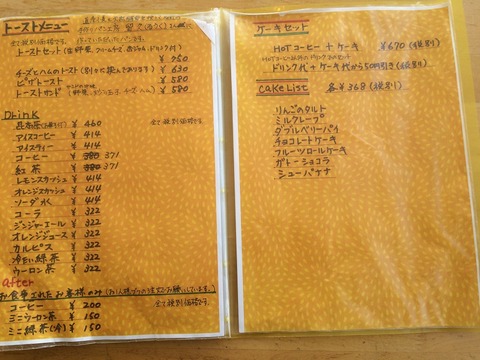 トーストメニュー
全て税別価格です。
トーストセット
チーズとハムのトースト ¥630
ピザトースト ¥580
トーストサンド ¥580
Drink
全て税別価格です。
昆布茶 ¥460
アイスコーヒー ¥414
アイスティー ¥414
コーヒー ¥380 371
紅茶 ¥380 371
レモンスカッシュ ¥414
オレンジスカッシュ ¥414
ソーダ水 ¥414
コーラ ¥322
ジンジャーエール ¥322
オレンジジュース ¥322
カルピス ¥322
冷たい緑茶 ¥322
ウーロン茶 ¥322
after
お食事されたお客様のみ
コーヒー ¥200 全て税別価格です。
ミニウーロン茶 ¥150
ミニ緑茶(冷) ¥150
ケーキセット
HOTコーヒー + ケーキ ¥670(税別)
HOTコーヒー以外のドリンクのセット
ドリンク代+ケーキ代から50円引き(税別)
CAKE List 各¥368(税別)
りんごのタルト
ミルクレープ
ダブルベリーパイ
チョコレートケーキ
フルーツロールケーキ
ガトーショコラ
シューバナナ